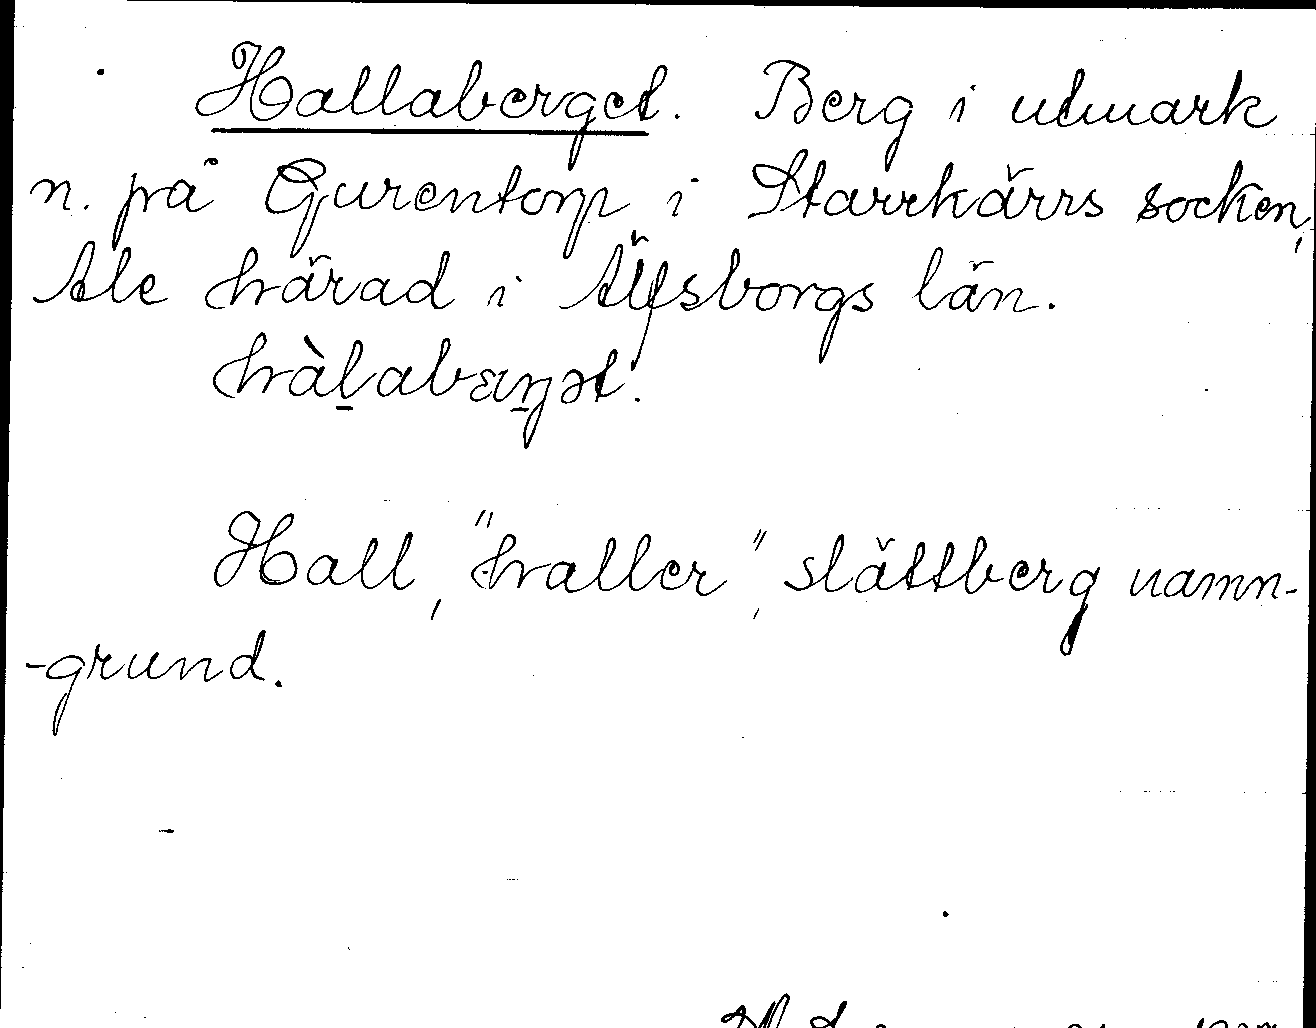 Hallaberget. Berg i utmark
n. på Gurentorp i Starrkärrs socken,
Ale härad i Älfsborgs län.
hàl̠abæŋət.
Hall, "haller", slättberg namn-
-grund.